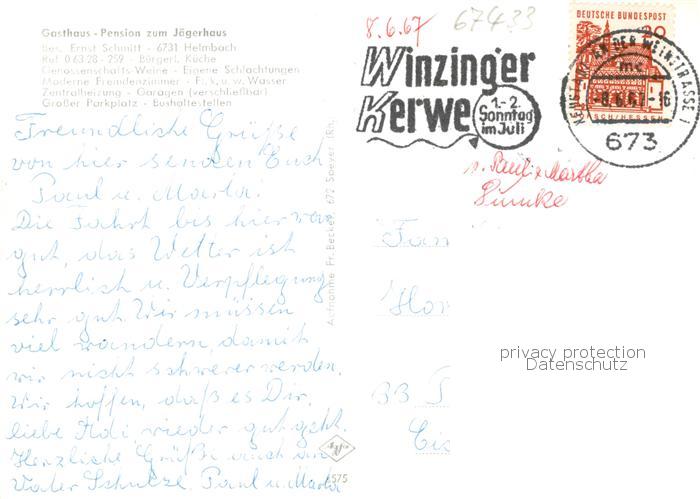 Gasthaus - Pension zum Jägerhaus
Bes. Ernst Schmitt - 6731 Helmbach
Ruf 0 63 28 - 259 - Bürgerl. Küche
Genossenschafts-Weine - Eigene Schlachtungen
Moderne Fremdenzimmer - Fl. k. u. w. Wasser
Zentralheizung - Garagen (verschließbar)
Großer Parkplatz - Bushaltestellen
Freundliche Grüße
von hier senden Euch
Paul u. Marta.
Die Fahrt bis hier war
gut, das Wetter ist
herrlich u. Verpflegung
sehr gut. Wir müssen
viel wandern, damit
wir nicht schwerer werden.
Wir hoffen, daß es Dir,
liebe Adi, wieder gut geht.
Herzliche Grüße auch an
Vater Schulze. Paul u. Marta
Aufnahme Fr. Becker, 672 Speyer (Rh.
6575
8.6.67
67433
Winzinger
Kerwe
1.-2.
Sonntag
im Juli
DEUTSCHE BUNDESPOST
20
LORSCH/HESSEN
NEUSTADT AN DER WEINSTRASSE 1
mc
-8.6.67-16
673
v. Paul u. Martha
Fam
Hor
privacy protection
Datenschutz